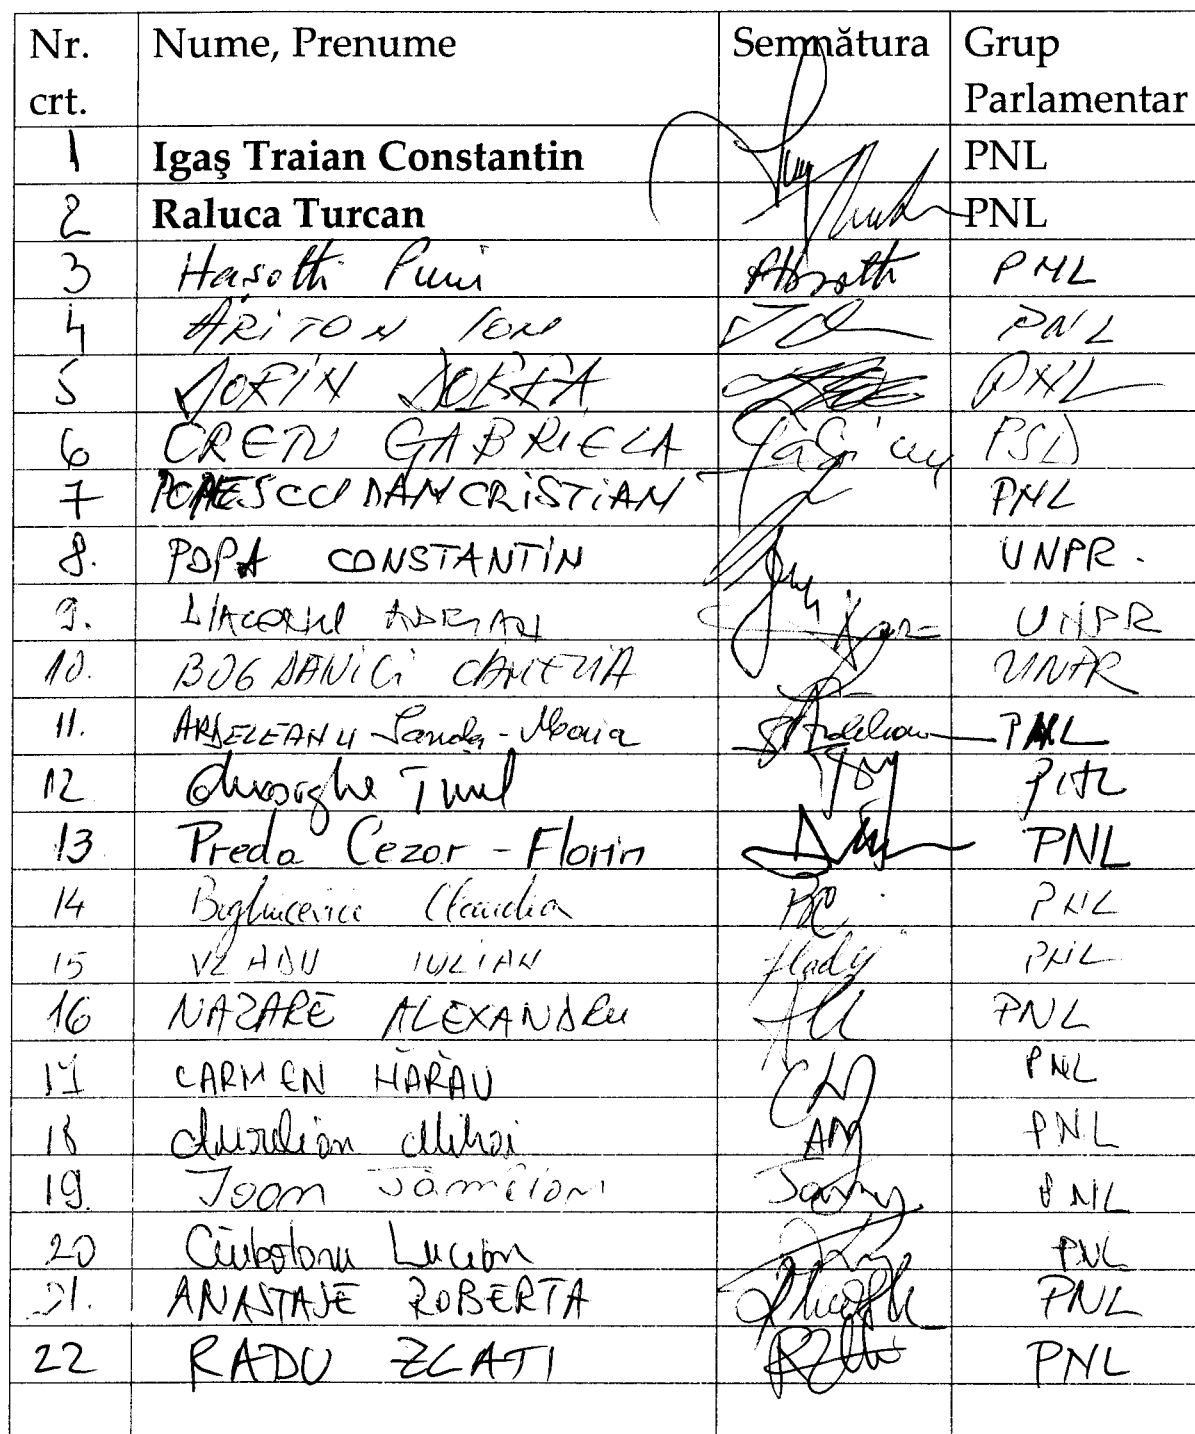 Nr. crt. Nume, Prenume Semnătura Grup Parlamentar
1 Igaş Traian Constantin PNL
2 Raluca Turcan PNL
3 Hașotti Puiu Hașotti PNL
4 ARITON ION PNL
5 DORIN DOBRA PNL
6 CREȚU GABRIELA PSD
7 POPESCU DAN CRISTIAN PNL
8. POPA CONSTANTIN UNPR.
9. ADRIAN UNPR
10. BOGDANICI CAMELIA UNPR
11. ARDELEANU Sanda-Maria Ardeleanu PNL
12 Gheorghe Tinel PNL
13 Preda Cezar-Florin PNL
14 Boghicevici Claudia BC PNL
15 VLADU IULIAN Vlady PNL
16 NAZARE ALEXANDRU PNL
17 CARMEN HĂRĂU CH PNL
18 Aurelian Mihai AM PNL
19. Ioan PNL
20 Ciubotaru Lucian PNL
21. ANASTASE ROBERTA PNL
22 RADU ZLATI PNL